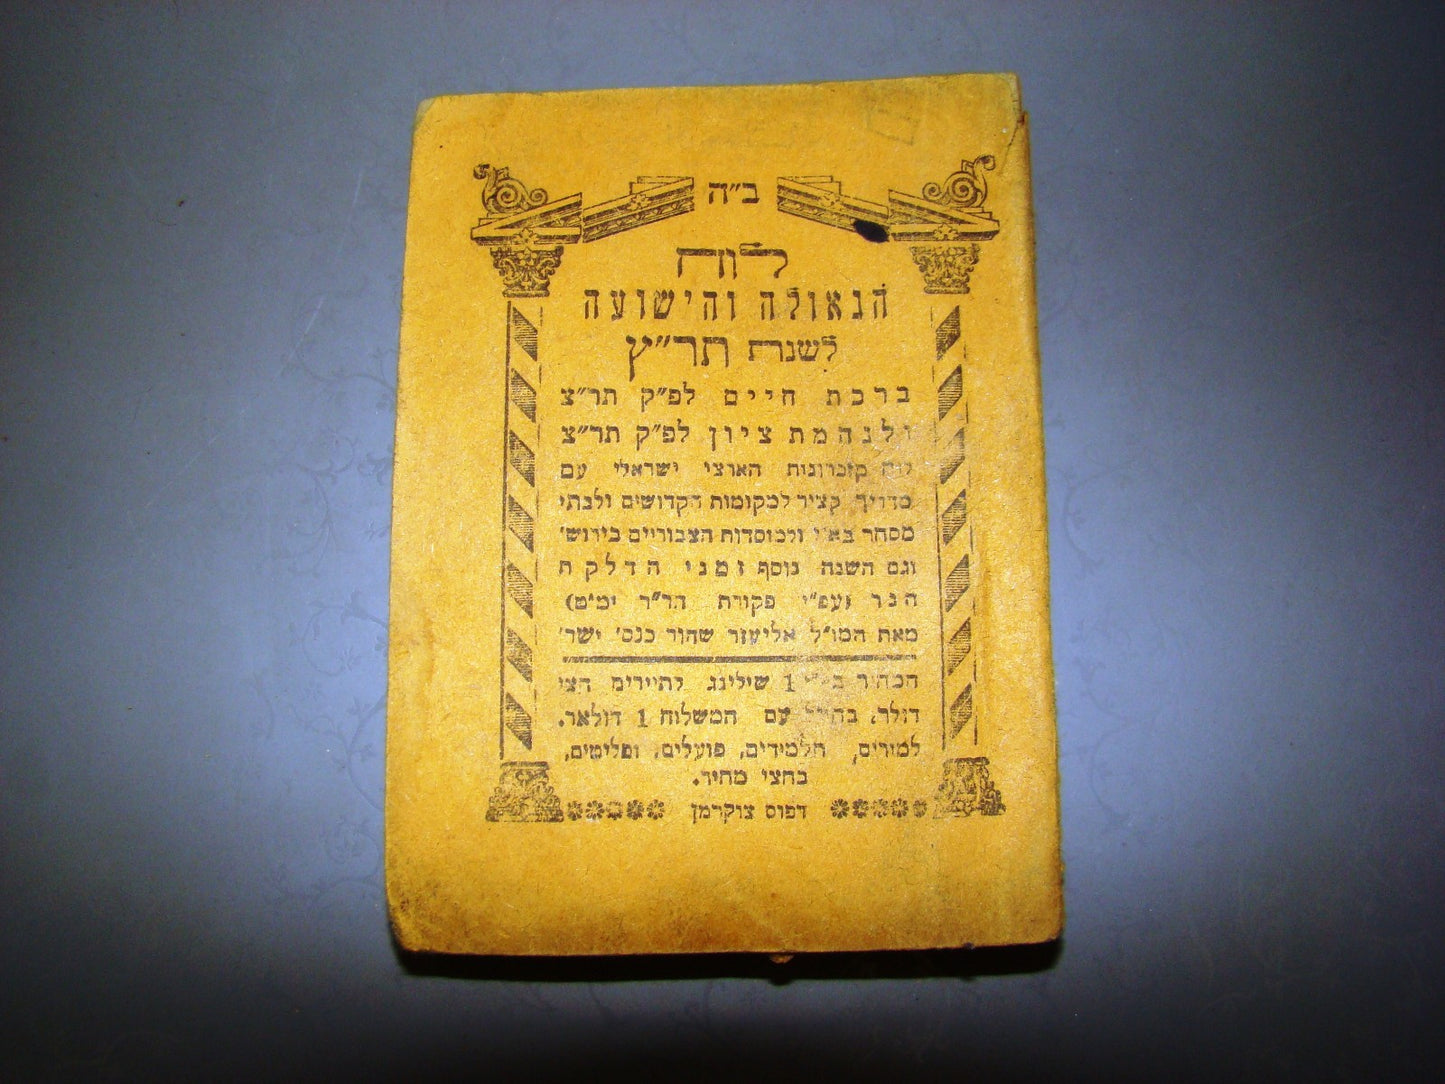 ב״ה
לוח
הגאולה והישועה
לשנת תר״ץ
ברכת חיים לפ״ק תר״צ
ולנחמת ציון לפ״ק תר״צ
לוח הזכרונות הארצי ישראלי עם
מדריך קציר למקומות הקדושים ולבתי
מסחר בא״י ולמוסדות הצבוריים בירוש׳
וגם השנה נוסף זמני הדלקת
הנר (עפ״י פקודת הר״ר ימ״ט)
מאת המו״ל אליעזר שחור כנס׳ ישר׳
המחיר 1 שילינג לתיירים חצי
דולר. בחו״ל עם המשלוח 1 דולאר.
למורים, תלמידים, פועלים, ופליטים,
בחצי מחיר.
דפוס צוקרמן